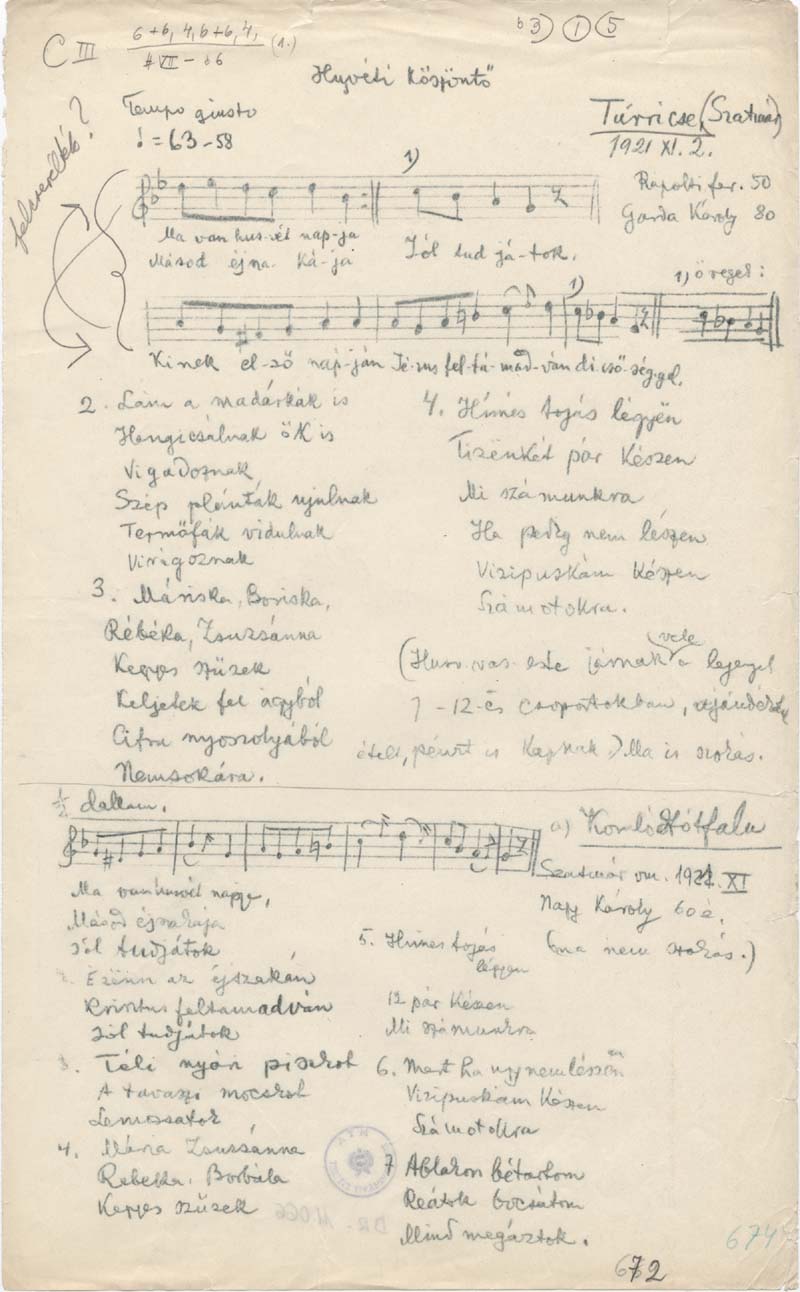 C III
6+6, 4, 6+6, 4,
VII – b6
(1.)
b3) 1 5
Husvéti Köszöntő
felcserélték?
Tempo giusto
♩ = 63–58
Túrricse (Szatmár)
1921 XI. 2.
Rapolti fer. 50
Garda Károly 80
1)
Ma van hus-vét nap-ja
Jól tud já-tok.
Másod éjna-ká-ja
1)
1) öregek:
Kinek el-ső nap-ján Jé-zus fel-tá-mad-ván di-cső-ség-gel.
2. Lám a madárkák is
Hengicsálnak ők is
Vigadoznak
Szép plánták ujulnak
Termőfák vidulnak
Virágoznak
3. Máriska, Boriska,
Rébéka, Zsuzsánna
Kegyes szüzek
Keljetek fel ágyból
Cifra nyoszolyából
Nemsokára.
4. Hímes tojás légyën
Tizënkét pár készen
Mi számunkra
Ha pedig nem lészen
Vizipuskám készen
Számotokra.
(Husv. vas. este járnak vele a legenyek
7–12-es csoportokban, ajándékba
ételt, pénzt is kapnak.) Ma is szokás.
1/2 dallam.
a) Komlódtótfalu
Szatmár vm. 1921. XI
Nagy Károly 60 é.
(ma nem szokás.)
Ma vanhusvét napja,
Másod éjszakája
Jól tudjátok
2. Ezënn az éjszakán
Krisztus feltamadván
Jól tudjátok
3. Téli nyári piszkot
A tavaszi mocskot
Lemossátok
4. Mária Zsuzsánna
Rebekka, Borbála
Kegyes szüzek
5. Himes tojás
légyen
12 pár készen
Mi számunkra
6. Mert ha ugy nem lészën
Vizipuskám készen
Számotokra
7 Ablakon bétartom
Reátok bocsátom
Mind megáztok.
674
672